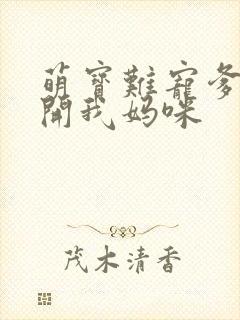 萌寶難寵爹
開我媽咪
茂木清香